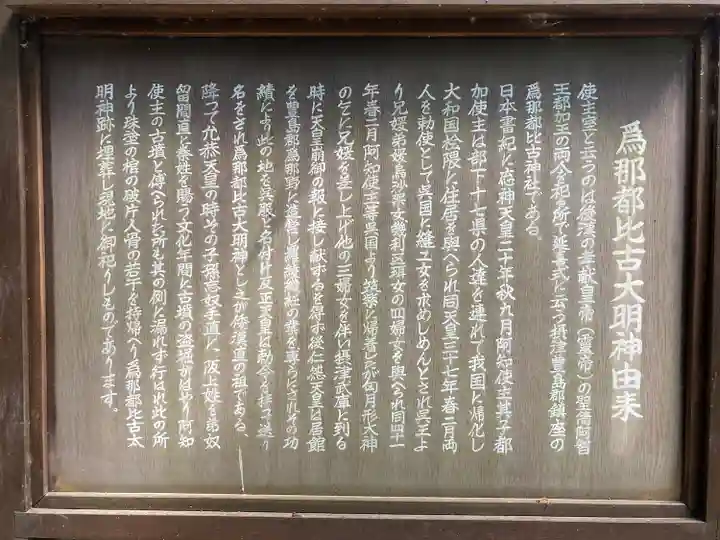 爲那都比古大明神由来
使主室と云うのは後漢の孝献皇帝（霊帝）の聖儒阿智
王都加王の両今を祀る所で延喜式に云う摂津豊島郡鎮座の
爲那都比古神社である。
日本書紀に応神天皇二十年秋九月阿知使主其子都
加使主は部下十七県の人達を連れて我国に帰化し
大和国桧隈に住居を與へられ同天皇三十七年春二月両
人を勅使として呉国に縫工女を求めしめんとされ呉王よ
り兄媛弟媛呉
年春二月阿知使主等呉国より筑紫に帰着したが旬月形大神
の乞に兄媛を差し上げ他の三婦女を伴い摂津武庫に到る
時に天皇崩御の報に接し献ずるを得ず後仁徳天皇は居館
を豊島郡爲那野に造営し
績により此の地を呉服と名付け反正天皇は勅令を
名をされ爲那都比古大明神とし之が倭漢直の祖である、
降つて允恭天皇の時その子孫
留間直に秦姓を賜う文化年間に古墳の盗掘がはやり阿知
使主の古墳と傳へられた所も其の例に漏れず行はれ此の所
より珠塗の棺の破片人骨の若干を持帰へり爲那都比古大
明神跡に埋葬し現地に御祀りしものであります。